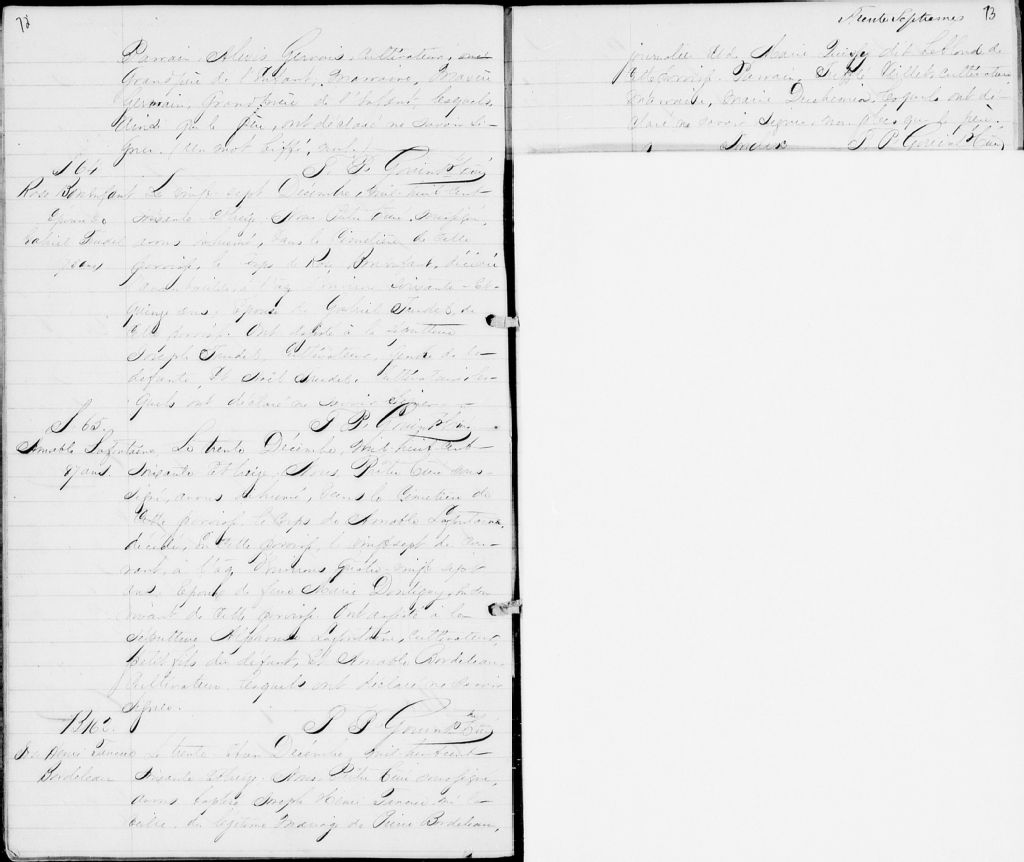 72
Parrain Alexis Gervais, cultivateur,
Grand père de l'Enfant, Marraine,
Germain, Grand'mère de l'Enfant, lesquels
ainsi que le père, ont déclaré ne savoir si-
gner. (Un mot biffé, nul.)
S 64. T. P. Gouin Ptre Curé
Rose Bonenfant Le vingt sept Décembre, mil huit cent
Epouse de soixante et treize, Nous Prêtre Curé, soussigné,
Gabriel Trudel avons inhumé, dans le Cimetière de cette
75 ans paroisse, le corps de Rose Bonenfant, décédée
l'avant veille, à l'âge d'environ soixante et
quinze ans, Epouse de Gabriel Trudel, de
cette paroisse. Ont assisté à la sépulture
Joseph Trudel, Cultivateur, de la
défunte, et Noël Trudel, Cultivateur, les-
quels ont déclaré ne savoir signer.
S 65. T. P. Gouin Ptre Curé
Amable Lafontaine Le trente Décembre, mil huit cent
87 ans. soixante et treize, Nous, Prêtre Curé sous-
signé, avons inhumé, dans le Cimetière de
cette paroisse, le corps de Amable Lafontaine,
décédé, en cette paroisse, le vingt sept du cou-
rant, à l'âge d'environ quatre vingt sept
ans, Epoux de feue Marie Dontigny, de son
vivant de cette paroisse. Ont assisté à la
sépulture Alphonse Lafontaine, Cultivateur,
petit fils du défunt, et Amable Bordeleau,
Cultivateur, lesquels ont déclaré ne savoir
signer.
B 162. T. P. Gouin Ptre Curé
Jos. Henri Le trente et un Décembre, mil huit cent
Bordeleau soixante et treize, Nous, Prêtre Curé soussigné,
avons baptisé Joseph Henri né la
veille, du légitime mariage de Pierre Bordeleau,
Trente Septième 73
journalier et de Marie dit Leblond de
cette paroisse. Parrain, Veillet, cultivateur
Marraine, Marie Duchemin, lesquels ont dé-
claré ne savoir signer, non plus que le père.
T. P. Gouin Ptre Curé